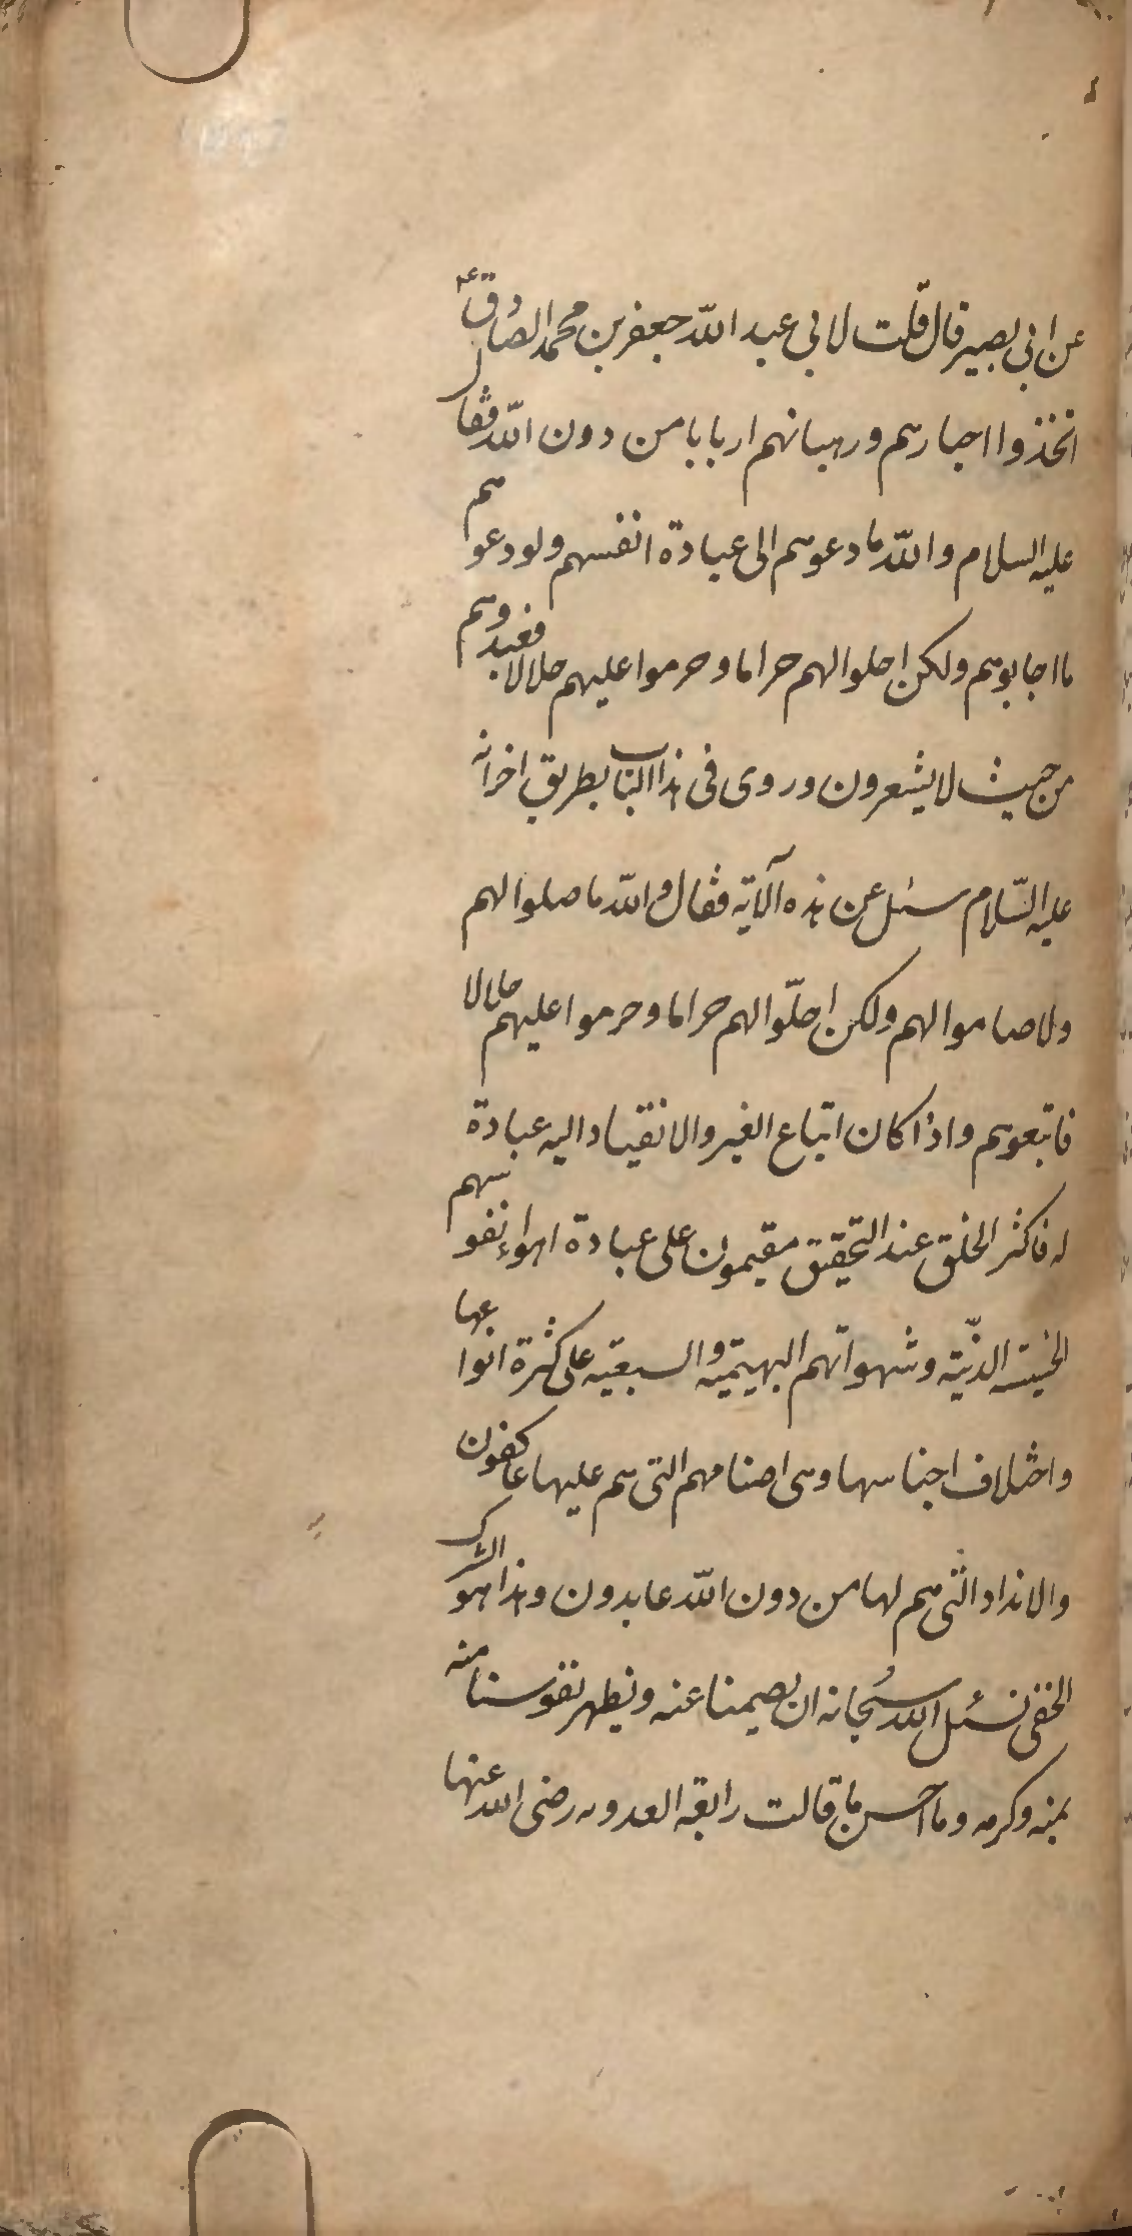 عن ابی بصیر قال قلت لابی عبد الله جعفر بن محمد الصادق ع
اتخذوا احبارهم ورهبانهم اربابا من دون الله فقال
علیه السلام والله ما دعوهم الی عبادة انفسهم ولو دعوهم
ما اجابوهم ولکن احلوا لهم حراما وحرموا علیهم حلالا فعبدوهم
من حیث لا یشعرون وروی فی هذا الباب بطریق اخر انه
علیه السّلام سئل عن هذه الآیة فقال والله ما صلوا لهم
ولا صاموا لهم ولکن احلّوا لهم حراما وحرموا علیهم حلالا
فاتبعوهم واذا کان اتباع الغیر والانقیاد الیه عبادة
له فاکثر الخلق عند التحقیق مقیمون علی عبادة اهواء نفوسهم
الدنیّة وشهواتهم البهیمیّه والسبعیّه علی کثرة انواعها
واختلاف اجناسها وهی اصنامهم التی هم علیها عاکفون
والانداد التی هم لها من دون الله عابدون وهذا هو الشرک
الخفی نسئل الله سُبحانه ان یعصمنا عنه ویطهر نفوسنا منه
بمنه وکرمه وما احسن ما قالت رابعه العدویه رضی الله عنها